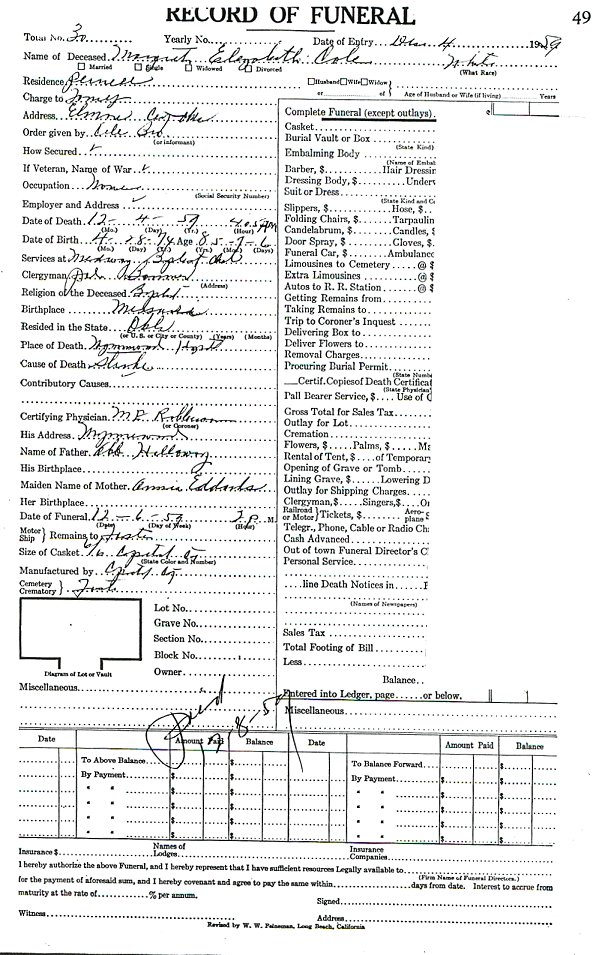 RECORD OF FUNERAL
49
Total No. 30 Yearly No. Date of Entry Dec 4 1959
Name of Deceased Margaret Elizabeth Cole White
Married Single Widowed Divorced (What Race)
Residence Husband Wife Widow
or of Age of Husband or Wife (if living) Years
Charge to Family
Address Elmore City Okla
Order given by
(or informant)
How Secured
If Veteran, Name of War
Occupation
(Social Security Number)
Employer and Address
Date of Death 12 - 4 - 59
(Mo.) (Day) (Yr.) (Hour)
Date of Birth 4 - 28 - 74 Age 85 - 7 - 6
(Mo.) (Day) (Yr.) (Yrs.) (Mos.) (Days)
Services at Baptist
Clergyman
(Address)
Religion of the Deceased Baptist
Birthplace
Resided in the State Okla
(or U. S. or City or County) (Years) (Months)
Place of Death Wynnewood
Cause of Death
Contributory Causes
Certifying Physician M. E. Robberson
(or Coroner)
His Address Wynnewood
Name of Father Holloway
His Birthplace
Maiden Name of Mother Annie
Her Birthplace
Date of Funeral 12 - 6 - 59 2 P. M.
(Date) (Day of Week) (Hour)
Motor Ship Remains to Foster
Size of Casket 6/6 Capitol City
(State Color and Number)
Manufactured by Capitol City
Cemetery Crematory
Lot No.
Grave No.
Section No.
Block No.
Owner
Diagram of Lot or Vault
Miscellaneous
Complete Funeral (except outlays)
Casket
Burial Vault or Box
(State Kind)
Embalming Body
(Name of Embal
Barber, $ Hair Dressin
Dressing Body, $ Underv
Suit or Dress
(State Kind and Co
Slippers, $ Hose, $
Folding Chairs, $ Tarpaulin
Candelabrum, $ Candles, $
Door Spray, $ Gloves, $
Funeral Car, $ Ambulanc
Limousines to Cemetery @ $
Extra Limousines @ $
Autos to R. R. Station @ $
Getting Remains from
Taking Remains to
Trip to Coroner's Inquest
Delivering Box to
Deliver Flowers to
Removal Charges
Procuring Burial Permit
(State Numbe
Certif. Copies of Death Certificat
(State Physician'
Pall Bearer Service, $ Use of C
Gross Total for Sales Tax
Outlay for Lot
Cremation
Flowers, $ Palms, $ Ma
Rental of Tent, $ of Temporary
Opening of Grave or Tomb
Lining Grave, $ Lowering D
Outlay for Shipping Charges
Clergyman, $ Singers, $ Or
Railroad or Motor Tickets, $ Aero-plane
Telegr., Phone, Cable or Radio Ch
Cash Advanced
Out of town Funeral Director's C
Personal Service
line Death Notices in
(Names of Newspapers)
Sales Tax
Total Footing of Bill
Less
Balance
Entered into Ledger, page or below.
Miscellaneous
Paid
Date Amount Paid Balance Date Amount Paid Balance
To Above Balance $ $ To Balance Forward $ $
By Payment $ $ By Payment $ $
" " $ $ " " $ $
" " $ $ " " $ $
" " $ $ " " $ $
" " $ $ " " $ $
Insurance $ Names of Lodges Insurance Companies
I hereby authorize the above Funeral, and I hereby represent that I have sufficient resources Legally available to
(Firm Name of Funeral Directors.)
for the payment of aforesaid sum, and I hereby covenant and agree to pay the same within days from date. Interest to accrue from
maturity at the rate of % per annum. Signed
Witness Address
Revised by W. W. Feineman, Long Beach, California